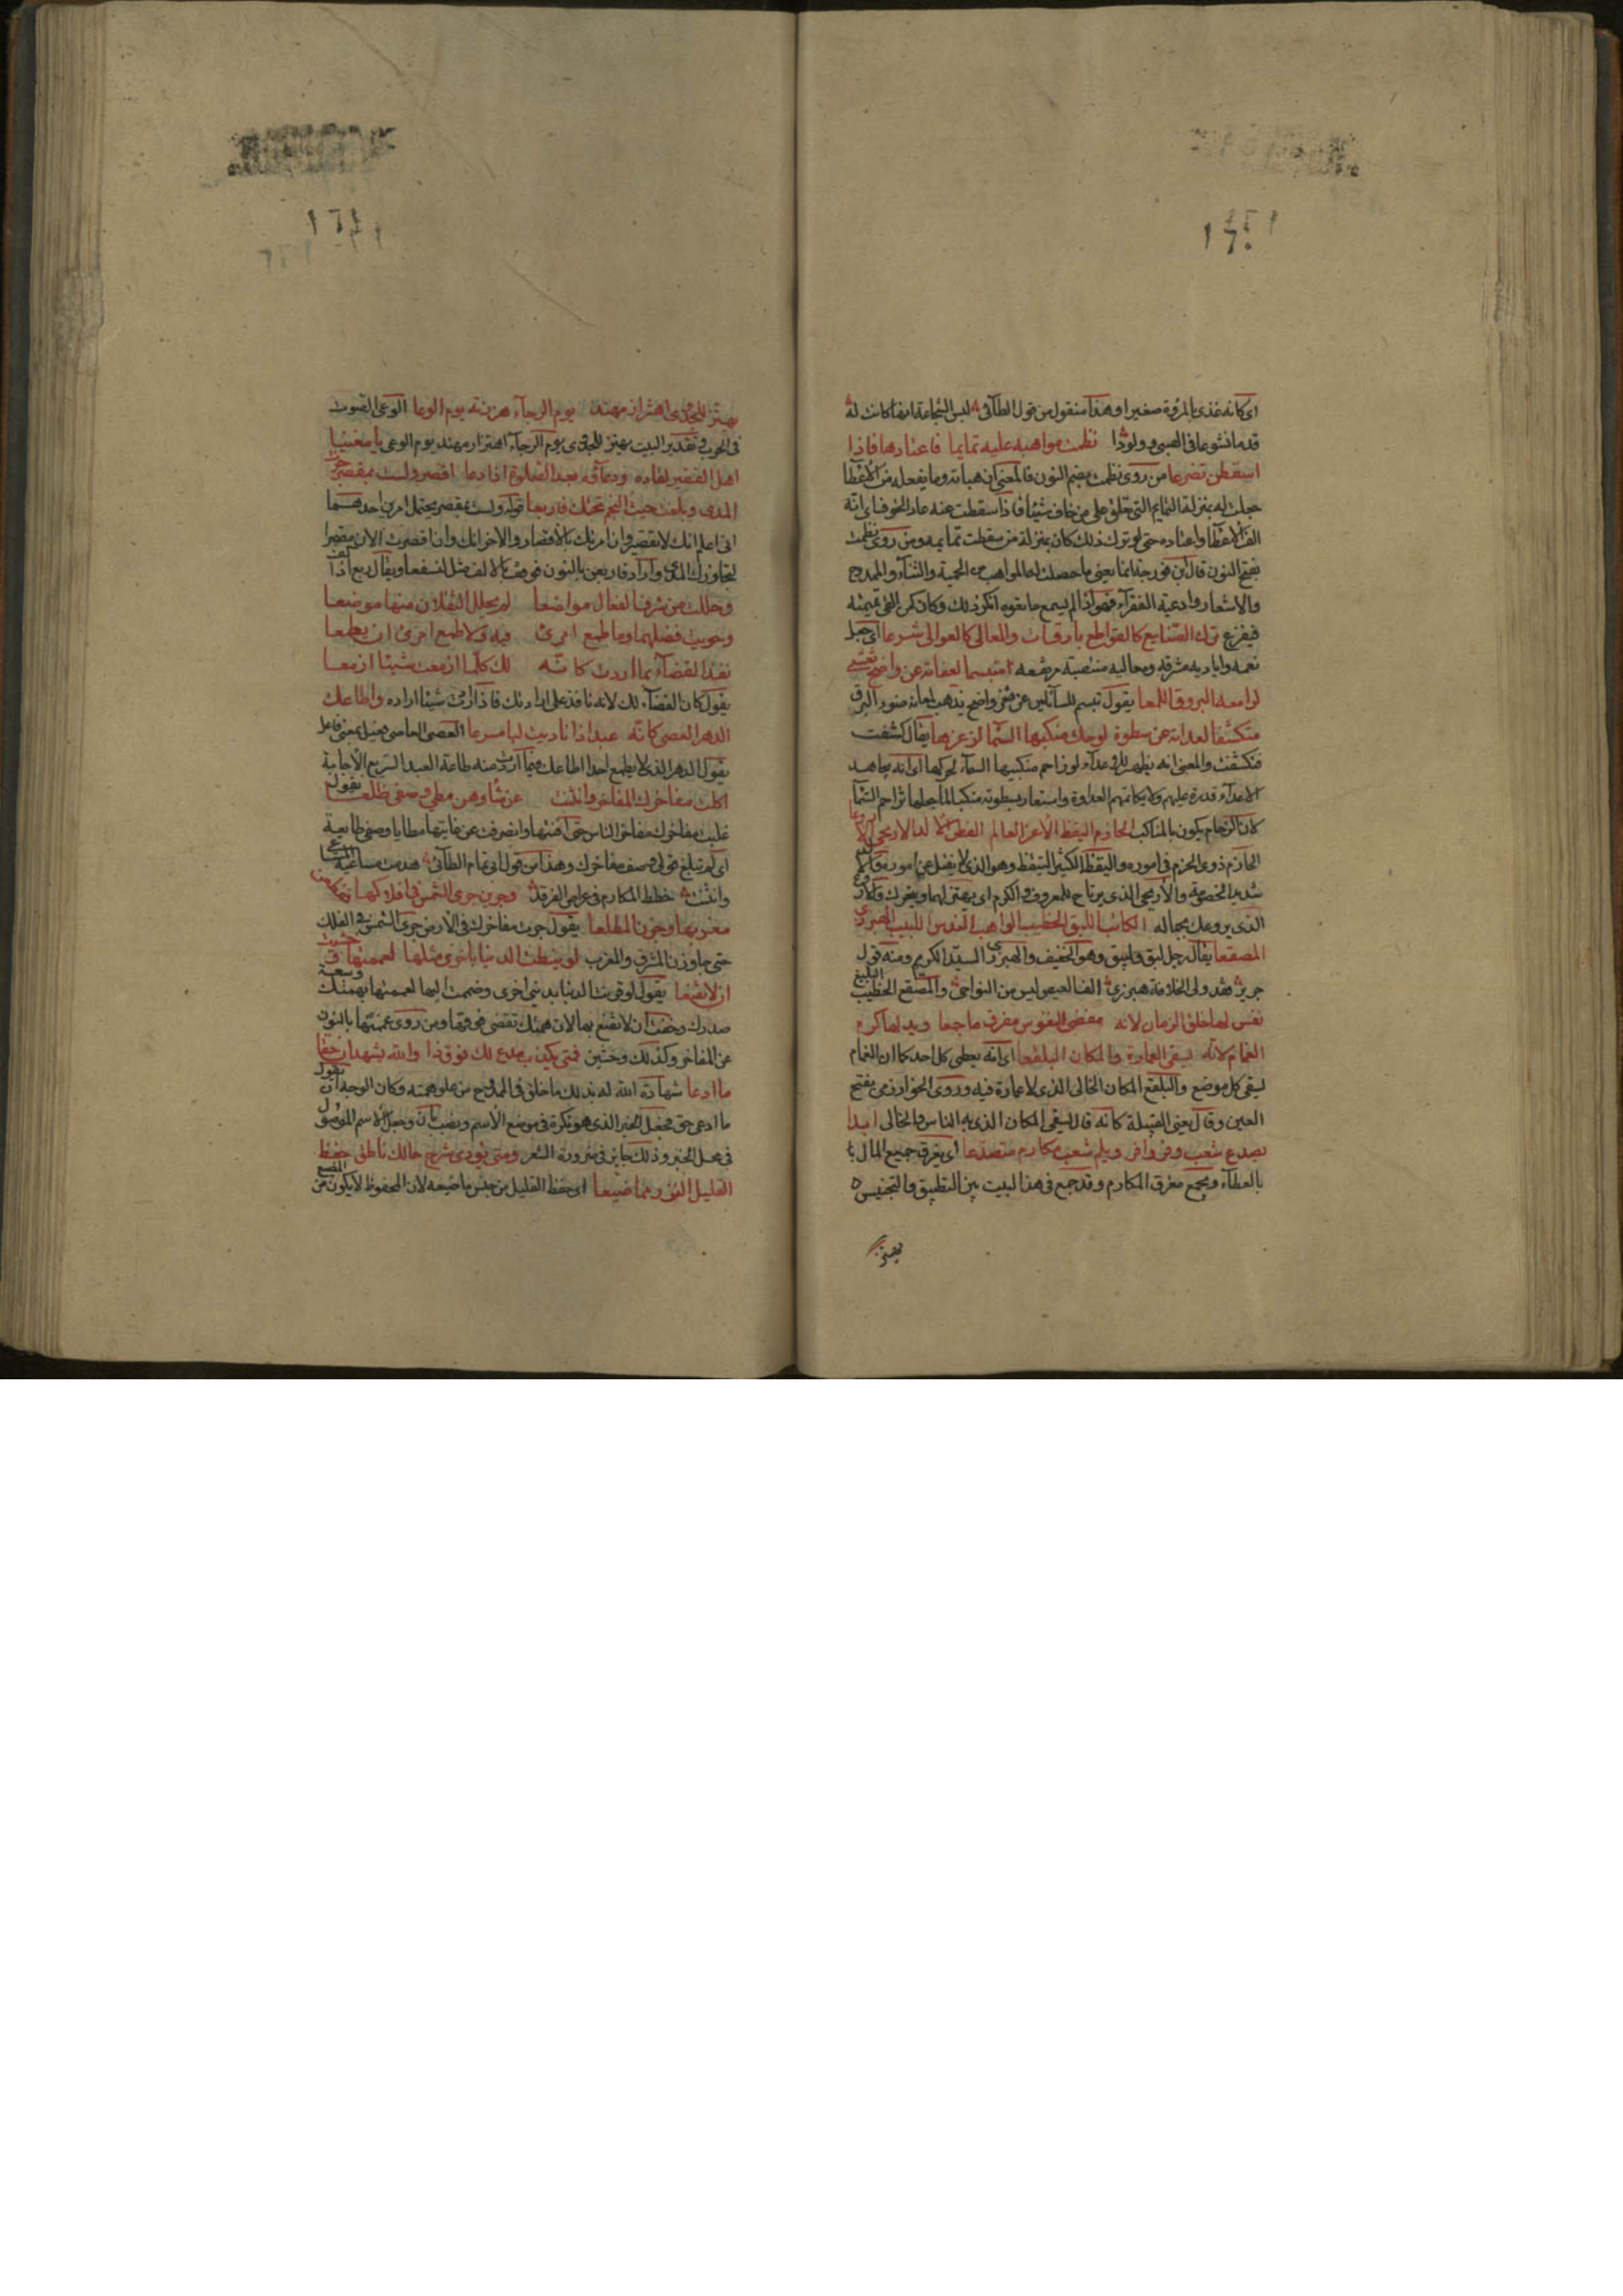 اى كانه غذى بالمروة صغيرا وهذا منقول من قول الطائى لبس الشجاعة انها كانت له
قدما نشوعا فى الصبى ولدودا نظمت مواهبه عليه تمايما فاعتادها فاذا
اسقطن تفزعا من روى نظمت بضم النون فالمعنى ان هباته وما يفعله من الاعطا
جعلت له بمنزلة التمايم التى تعلق على من خاف شيئا فاذا سقطت عنه عاد الخوف اى انه
الف الاعطا واعتاده حتى لو ترك ذلك كان بمنزلة من سقطت تمايمه ومن روى نظمت
بفتح النون قال ابن فورجة انما يعنى ما حصلت له المواهب من الحمد والثناء والمدح
والاشعار وادعية الفقراء فهو اذا لم يسمع ما تعوده انكر ذلك وكان كمن القى تميمته
فيفزع ترك الصنايع كالقواطع بارقات والمعالى كالعوالى شرعا اى جعل
نعمه واياديه مشرقة ومعاليه منتصبة مرتفعه متبسما لعفاته عن واضح تغشى
لوامعه البروق اللمعا يقول تبسم للسائلين عن ثغر واضح يذهب لمعانه ضوء البرق
متكشفا لعداته عن سطوة لو حك منكبها السما لزعزعها يقال كشفت
فتكشفت والمعنى انه يظهر للاعداء لو زاحم منكبيها السماء لحركها اى انه يجاهد
الاعداء قدرة عليهم ولا يكاتمهم العداوة واستعار لسطوته منكبا لما جعلها تزاحم السما
لان الزحام يكون بالمناكب الحازم اليقظ الاعز العالم الفطن الالد الاريحى الاروعا
الحازم ذوى الحزم فى اموره واليقظ الكثير التيقظ وهو الذى لا يغفل عن اموره والالد
شديد الخصومة والاريحى الذى يرتاح للمعروف والكرم اى يهتز لهما ويتحرك والاروع
الذى يروعك بجماله الكاتب اللبق الخطيب الواهب الندس اللبيب الهبرزى
المصقعا يقال رجل لبق ولبيق وهو الخفيف والهبرزى السيد الكريم ومنه قول
جرير فقد ولى الخلافة هبرزى الف العيص ليس من النواحى والمصقع الخطيب البليغ
نفس لها خلق الزمان لانه مفنى النفوس مفرق ما جمعا ويد لها كرم
الغمام لانه يسقى العمارة والمكان البلقعا اى انه يعطى كل احد كما ان الغمام
يسقى كل موضع والبلقع المكان الخالى الذى لا عمارة فيه وروى الخوارزمى بفتح
العين وقال يعنى القبيلة كانه قال يسقى المكان الذى به الناس والخالى ابدا
يصدع شعب وفر وافر ويلم شعب مكارم متصدعا اى يفرق جميع المال
بالعطاء ويجمع مفرق المكارم وقد جمع فى هذا البيت بين التطبيق والتجنيس
يهتز
يهتز للجدوى اهتزاز مهند يوم الرجاء هززته يوم الوعا الوعى الصوت
فى الحرب وتقدير البيت يهتز للجدوى يوم الرجاء اهتزاز مهند يوم الوعى يا مغنيا
امل الفقير لقاده ودعاؤه بعد الصلوة اذا دعا اقصر ولست بمقصر جزت
المدى وبلغت حيث النجم تحتك فاربعا قوله ولست بمقصر يحتمل امرين احدهما
انى اعلم انك لا تقصر وان امرتك بالاقصار والاخر انك وان اقصرت الان مقصرا
لتجاوزك المدى واراد فاربعن بالنون فوقف بالالف مثل لنسفعا ويقال ربع اذا كف
وحللت من شرف الفعال مواضعا لم يحلل الثقلان منها موضعا
وحويت فضلهما وما طمع امرئ فيه ولا طمع امرئ ان يطمعا
نفذ القضاء بما اردت كانه لك كلما ازمعت شيئا ازمعا
يقول كان القضاء لك لانه نافذ على ارادتك فاذا اردت شيئا اراده واطاعك
الدهر العصى كانه عبد اذا ناديت لبا مسرعا العصى العاصى فعيل بمعنى فاعل
يقول الدهر الذى لا يطيع احدا اطاعك فيما اردت منه طاعة العبد السريع الاجابة
اكلت مفاخرك المفاخر وانثنت عن شاوهن مطى وصفى ظلعا يقول
غلبت مفاخرك مفاخر الناس حتى افنتها وانصرفت عن غايتها مطايا وصفى ظالعة
اى لم تبلغ قولى وصف مفاخرك وهذا من قول ابى تمام الطائى هدمت مساعيه المساعى
وانثنت خطط المكارم فى عراص الفرقد وجرين جرى الشمس فى افلاكها فقطعن
مغربها وجزن المطلعا يقول جرت مفاخرك فى الارض جرى الشمس فى الفلك
حتى جاوزن المشرق والمغرب لو نيطت الدنيا باخرى مثلها لعممتها وخشيت
ان لا تقنعا يقول لو قرنت الدنيا بدنيا اخرى وضمت اليها لعممتها بهمتك وسعة
صدرك وخفت ان لا تقنع بها لان همتك تقتضى فوقها ومن روى عممنها بالنون
عن المفاخر وكذلك وخشين فمتى يكذب مدع لك فوق ذا والله يشهد ان حقا
ما ادعا شهادة الله له بذلك ما خلق فى الممدوح من علو همته وكان الوجه ان يقول
ما ادعى حق فجعل الخبر الذى هو نكرة فى موضع الاسم ونصب بان وجعل الاسم الموصول
فى محل الخبر وذلك جايز فى ضرورة الشعر ومتى يودى شرح حالك ناطق حفظ
القليل النزر مما ضيعا اى حفظ القليل من جنس ما ضيعه لان المحفوظ لا يكون من المضيع